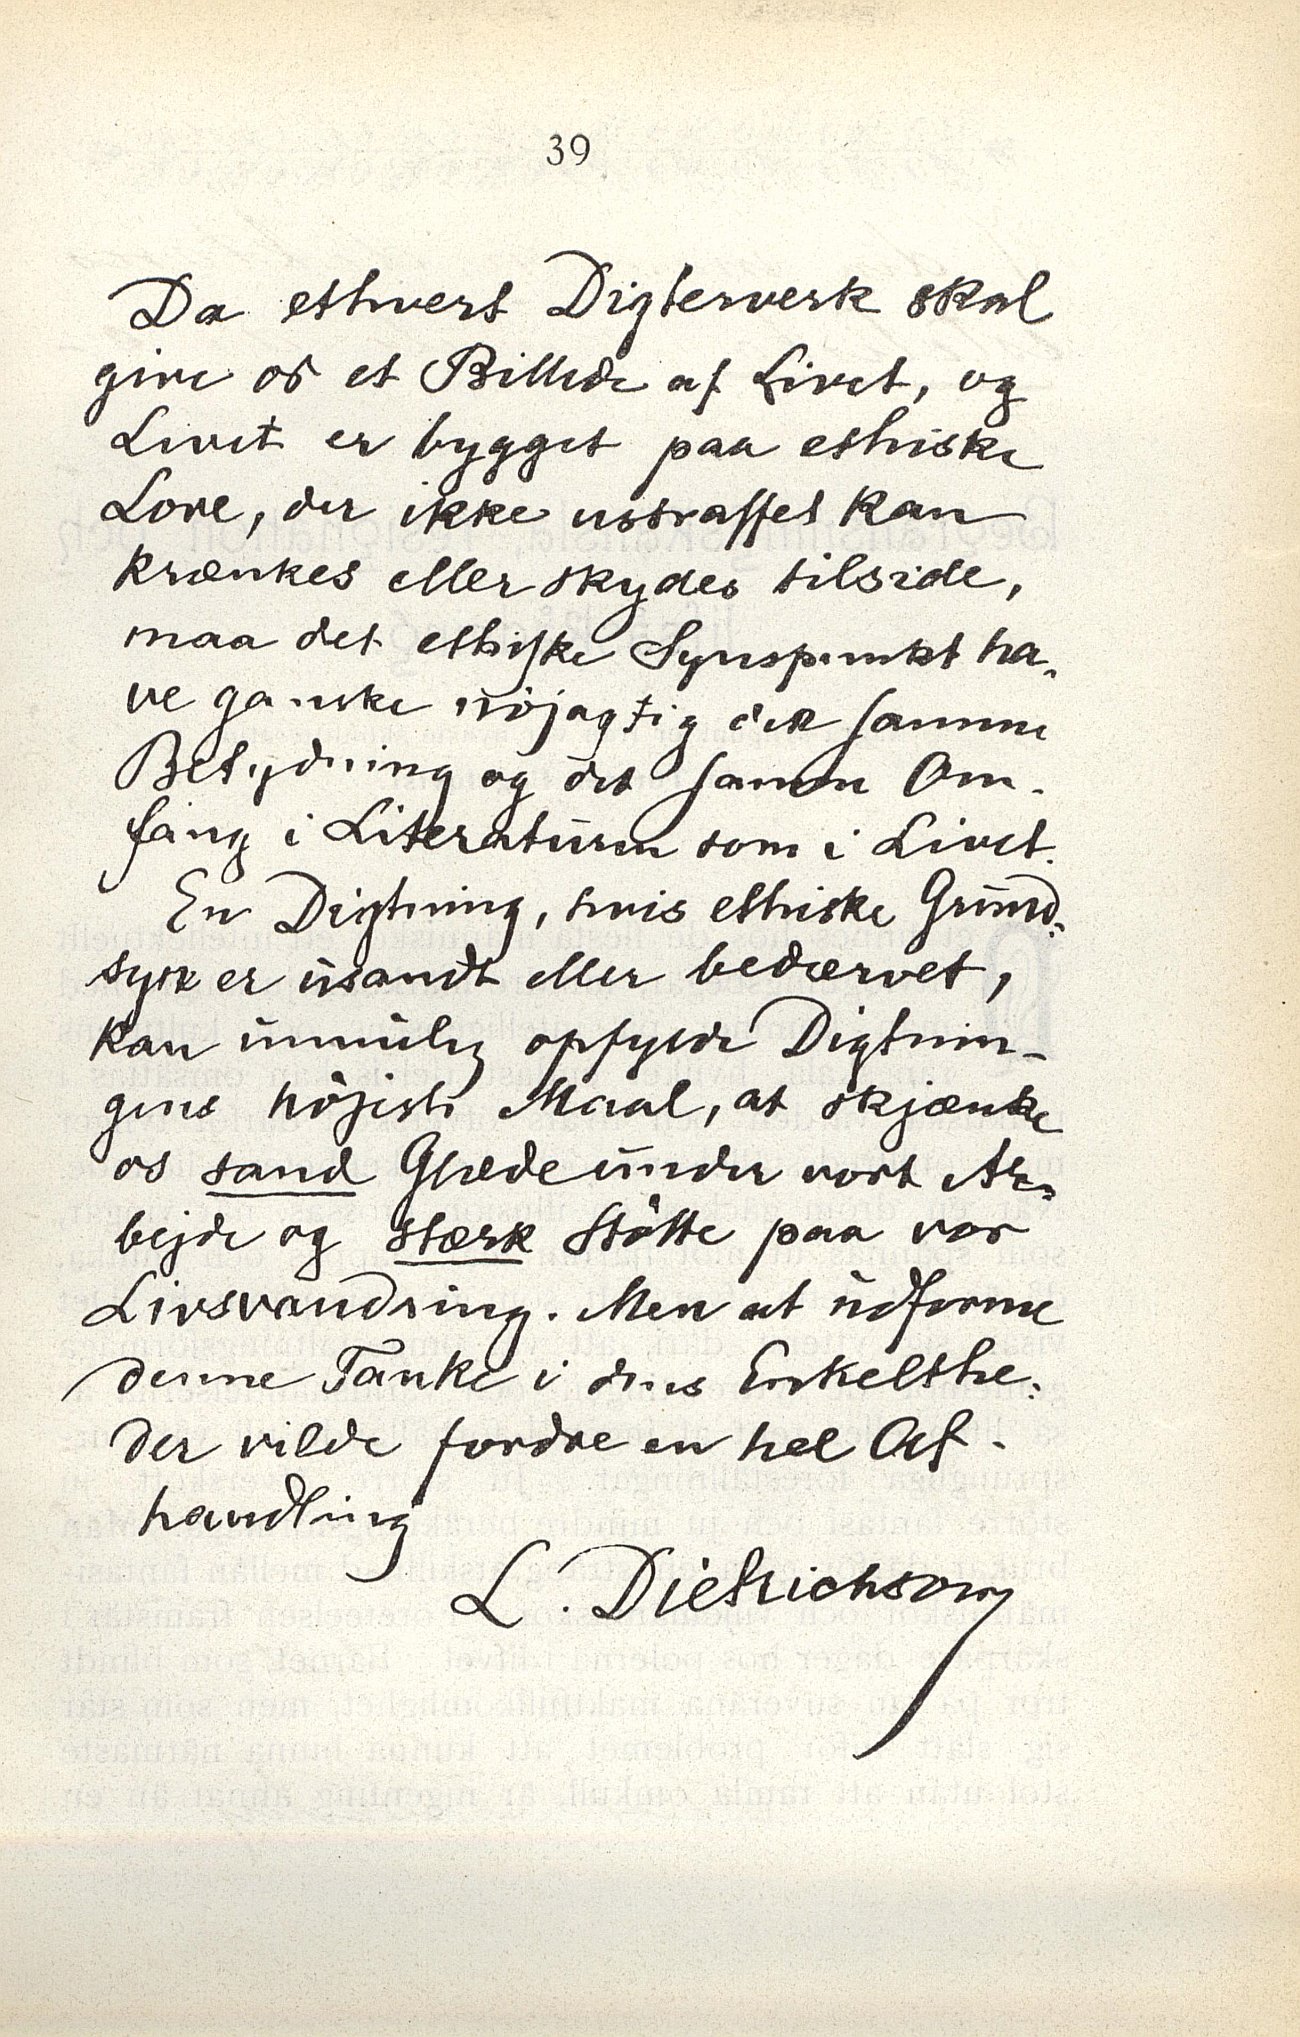 39
Da ethvert Digterverk skal
give os et Billede af Livet, og
Livet er bygget paa ethiske
Love, der ikke ustraffet kan
krænkes eller skydes tilside,
maa det ethiske Synspunkt ha-
ve ganske nöjagtig den samme
Betydning og det samme Om-
fang i Literaturen som i Livet.
En Digtning, hvis ethiske Grund-
syn er usandt eller bedærvet,
kan umulig opfylde Digtnin-
gens höjeste Maal, at skjænke
os sand Glæde under vort Ar-
bejde og stærk Stötte paa vor
Livsvandring. Men at udforme
denne Tanke i dens Enkelthe-
der vilde fordre en hel Af-
handling
L. Dietrichson